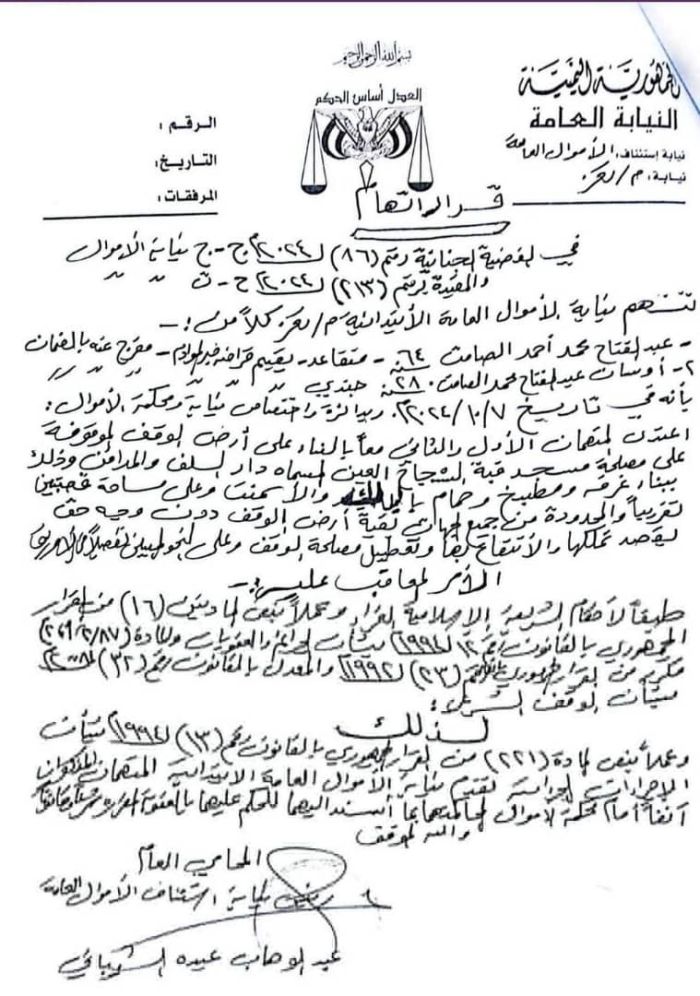 بسم الله الرحمن الرحيم
الجمهورية اليمنية
النيابة العامة
نيابة إستئناف: الأموال العامة
نيابة: م/تعز
العدل أساس الحكم
الرقم :
التاريخ :
المرفقات :
قرار اتهام
في القضية الجنائية رقم (٨٦) لـ ٢٠٢٤م ج-ج نيابة الأموال
والمقيدة برقم (٢١٣) لـ ٢٠٢٤م ح-ت " "
تتهم نيابة الأموال العامة الأبتدائية م/تعز كلاً من :-
- عبدالفتاح محمد أحمد الصامت ٦٤ سنة - متقاعد - يقيم - مفرج عنه بالضمان
٢- أوسان عبدالفتاح محمد الصامت ٢٨ سنة جندي " " " "
بأنه في تاريخ ٢٠٢٤/١٠/٧م وبدائرة واختصاص نيابة ومحكمة الأموال :
اعتدى المتهمان الأول والثاني معاً بالبناء على أرض الوقف الموقوفة
على مصلحة مسجد قبة العين المسماه دار السلف والمدافن وذلك
ببناء غرفة ومطبخ وحمام والأسمنت وعلى مساحة قصبتين
تقريباً والمحدودة من جميع الجهات بقية أرض الوقف دون وجه حق
بقصد تملكها والأنتفاع بها وتعطيل مصلحة الوقف وعلى النحو المبين تفصيلاً
الأمر المعاقب عليه :-
طبقاً لأحكام الشريعة الإسلامية الغراء وعملاً بنص المادتين (١٦) من القرار
الجمهوري بالقانون رقم ١٢ لـ ١٩٩٤م بشأن الجرائم والعقوبات والمادة
مكرر من القرار الجمهوري بالقانون رقم (٢٣) لـ ١٩٩٢م والمعدل بالقانون رقم (٣٢) لـ ٢٠٠٨م
بشأن الوقف الشرعي :
لذلك
وعملاً بنص المادة (٢٢١) من القرار الجمهوري بالقانون رقم (١٣) لـ ١٩٩٤م بشأن
الإجراءات الجزائية تقدم نيابة الأموال العامة الابتدائية المتهمان المذكوران
آنفاً أمام محكمة الأموال لمحاكمتهما بما أسند اليهما للحكم عليهما بالعقوبة المقررة شرعاً وقانوناً
والله الموفق
المحامي العام
رئيس نيابة استئناف الأموال العامة
عبدالوهاب عبده